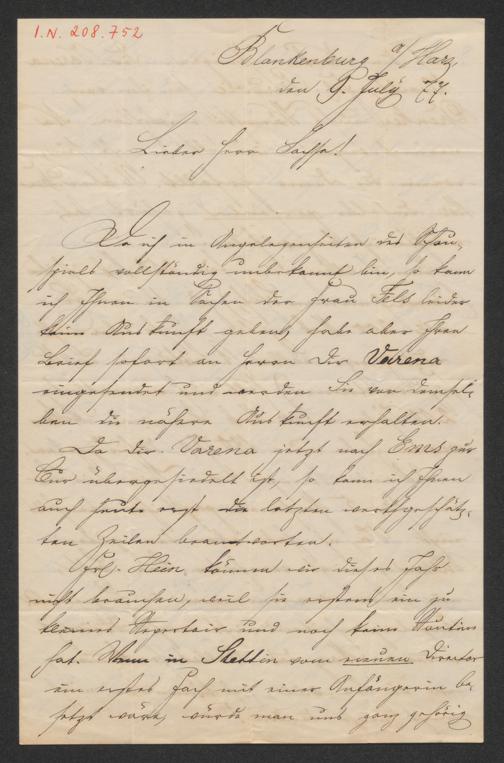 I.N. 208.752
Blankenburg a/Harz
den 9. July 77.
Lieber Herr Sachse!
Da ich in Angelegenheiten des Schau-
spiels vollständig unbekannt bin, so kann
ich Ihnen in Sachen der Frau Fels leider
keine Auskunft geben, habe aber Ihren
Brief sofort an Herrn Dir Varena
eingesendet und werden Sie von demsel-
ben die nähere Auskunft erhalten.
Da Dir. Varena jetzt nach Ems zur
Cur übergesiedelt ist, so kann ich Ihnen
auch heute erst die letzten werthgeschätz-
ten Zeilen beantworten.
Frl. Hein können wir dieses Jahr
nicht brauchen, weil sie erstens ein zu
kleines Repertoir und noch keine Routine
hat. Wenn in Stettin vom neuen Director
ein erstes Fach mit einer Anfängerin be-
setzt wäre, würde man uns ganz gehörig